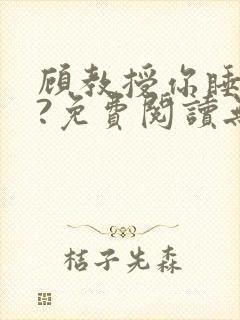 顾教授你睡
?免費閱讀
桔子先森